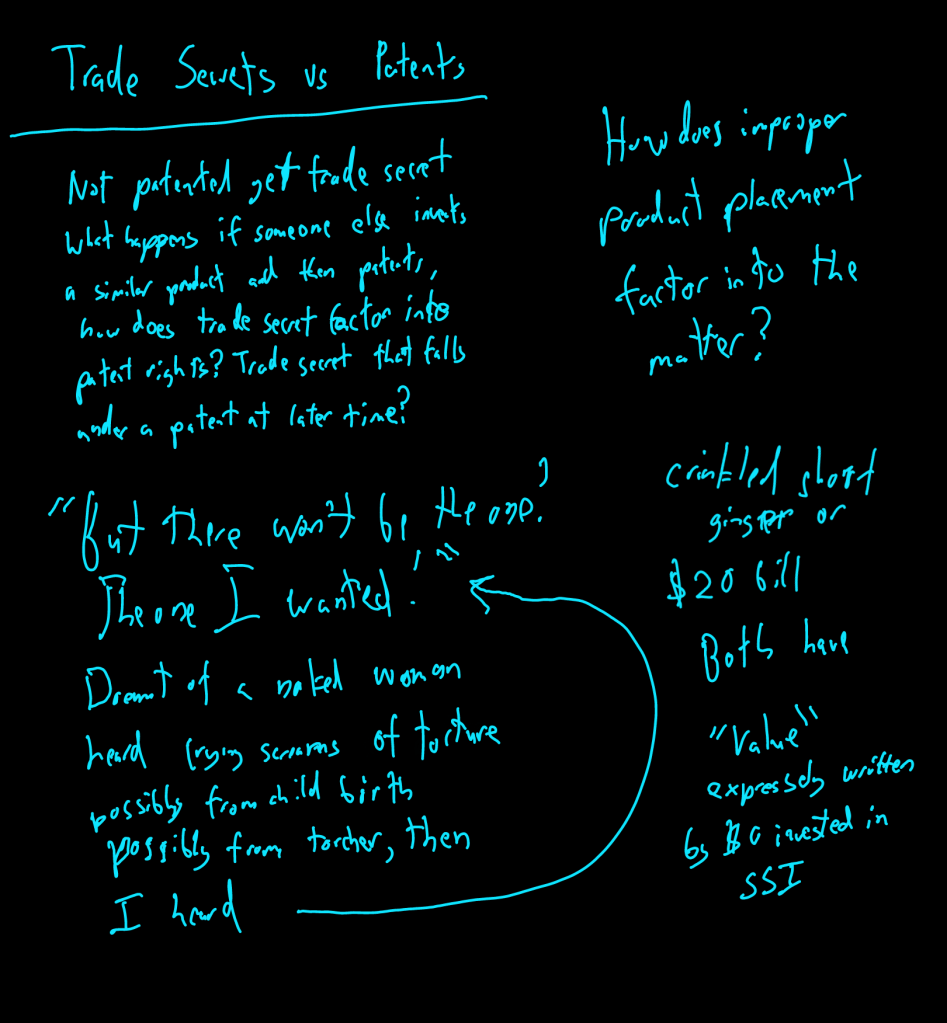 Trade Secrets vs Patents
Not patented yet trade secret
What happens if someone else invents
a similar product and then patents,
how does trade secret factor into
patent rights? Trade secret that falls
under a patent at later time?
"But there won't be the one?
The one I wanted!"
Dreamt of a naked woman
heard crying screams of torture
possibly from child birth
possibly from torcher, then
I heard
How does improper
product placement
factor into the
matter?
crinkled short
or
$20 bill
Both have
"Value"
expressely written
by $0 invested in
SSI